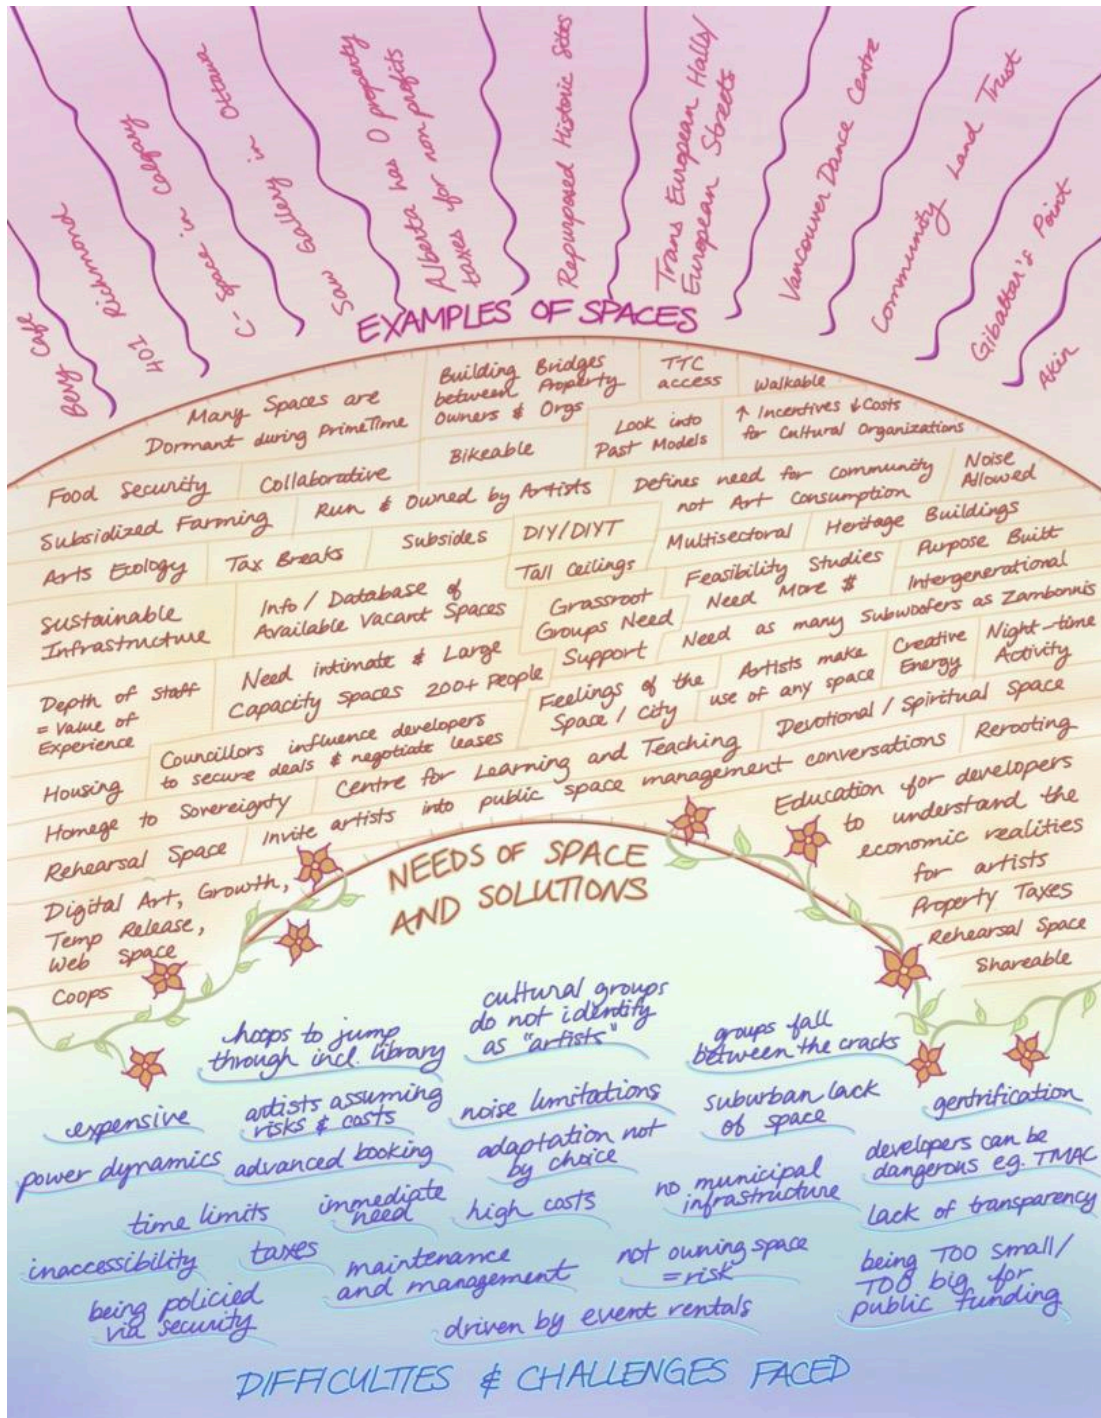 Beny Cafe
401 Richmond
C-Space in Calgary
Saw Gallery in Ottawa
Alberta has 0 property
taxes for non profits
Repurposed Historic Sites
Trans European Hally
European Streets
Vancouver Dance Centre
Community Land Trust
Gibaltar's Point
Akin
EXAMPLES OF SPACES
Many Spaces are
Dormant during PrimeTime
Building Bridges
between Property
Owners & Orgs
TTC
access
Walkable
Look into
Past Models
↑ Incentives ↓ Costs
for Cultural Organizations
Food Security
Collaborative
Bikeable
Defines need for community
not Art Consumption
Noise
Allowed
Subsidized Farming
Run & Owned by Artists
Arts Ecology
Tax Breaks
Subsides
DIY/DIYT
Multisectoral
Heritage Buildings
Tall Ceilings
Feasibility Studies
Purpose Built
Sustainable
Infrastructure
Info / Database of
Available Vacant Spaces
Grassroot
Groups Need
Support
Need More $
Intergenerational
Need as many Subwoofers as Zambonnis
Depth of Staff
= Value of
Experience
Need intimate & Large
Capacity Spaces 200+ People
Feelings of the
Space / City
Artists make
use of any space
Creative
Energy
Night-time
Activity
Housing
Councillors influence developers
to secure deals & negotiate leases
Devotional / Spiritual Space
Homege to Sovereignty
Centre for Learning and Teaching
Rerooting
Rehearsal Space
Invite artists into public space management conversations
Education for developers
to understand the
economic realities
for artists
Digital Art, Growth,
Temp Release,
Web Space
Property Taxes
Rehearsal Space
Coops
Shareable
NEEDS OF SPACE
AND SOLUTIONS
hoops to jump
through incl. library
cultural groups
do not identify
as "artists"
groups fall
between the cracks
expensive
artists assuming
risks & costs
noise limitations
suburban lack
of space
gentrification
power dynamics
advanced booking
adaptation not
by choice
developers can be
dangerous eg. TMAC
time limits
immediate
need
high costs
no municipal
infrastructure
lack of transparency
inaccessibility
taxes
maintenance
and management
not owning space
= risk
being TOO small/
TOO big for
public funding
being policied
via security
driven by event rentals
DIFFICULTIES & CHALLENGES FACED